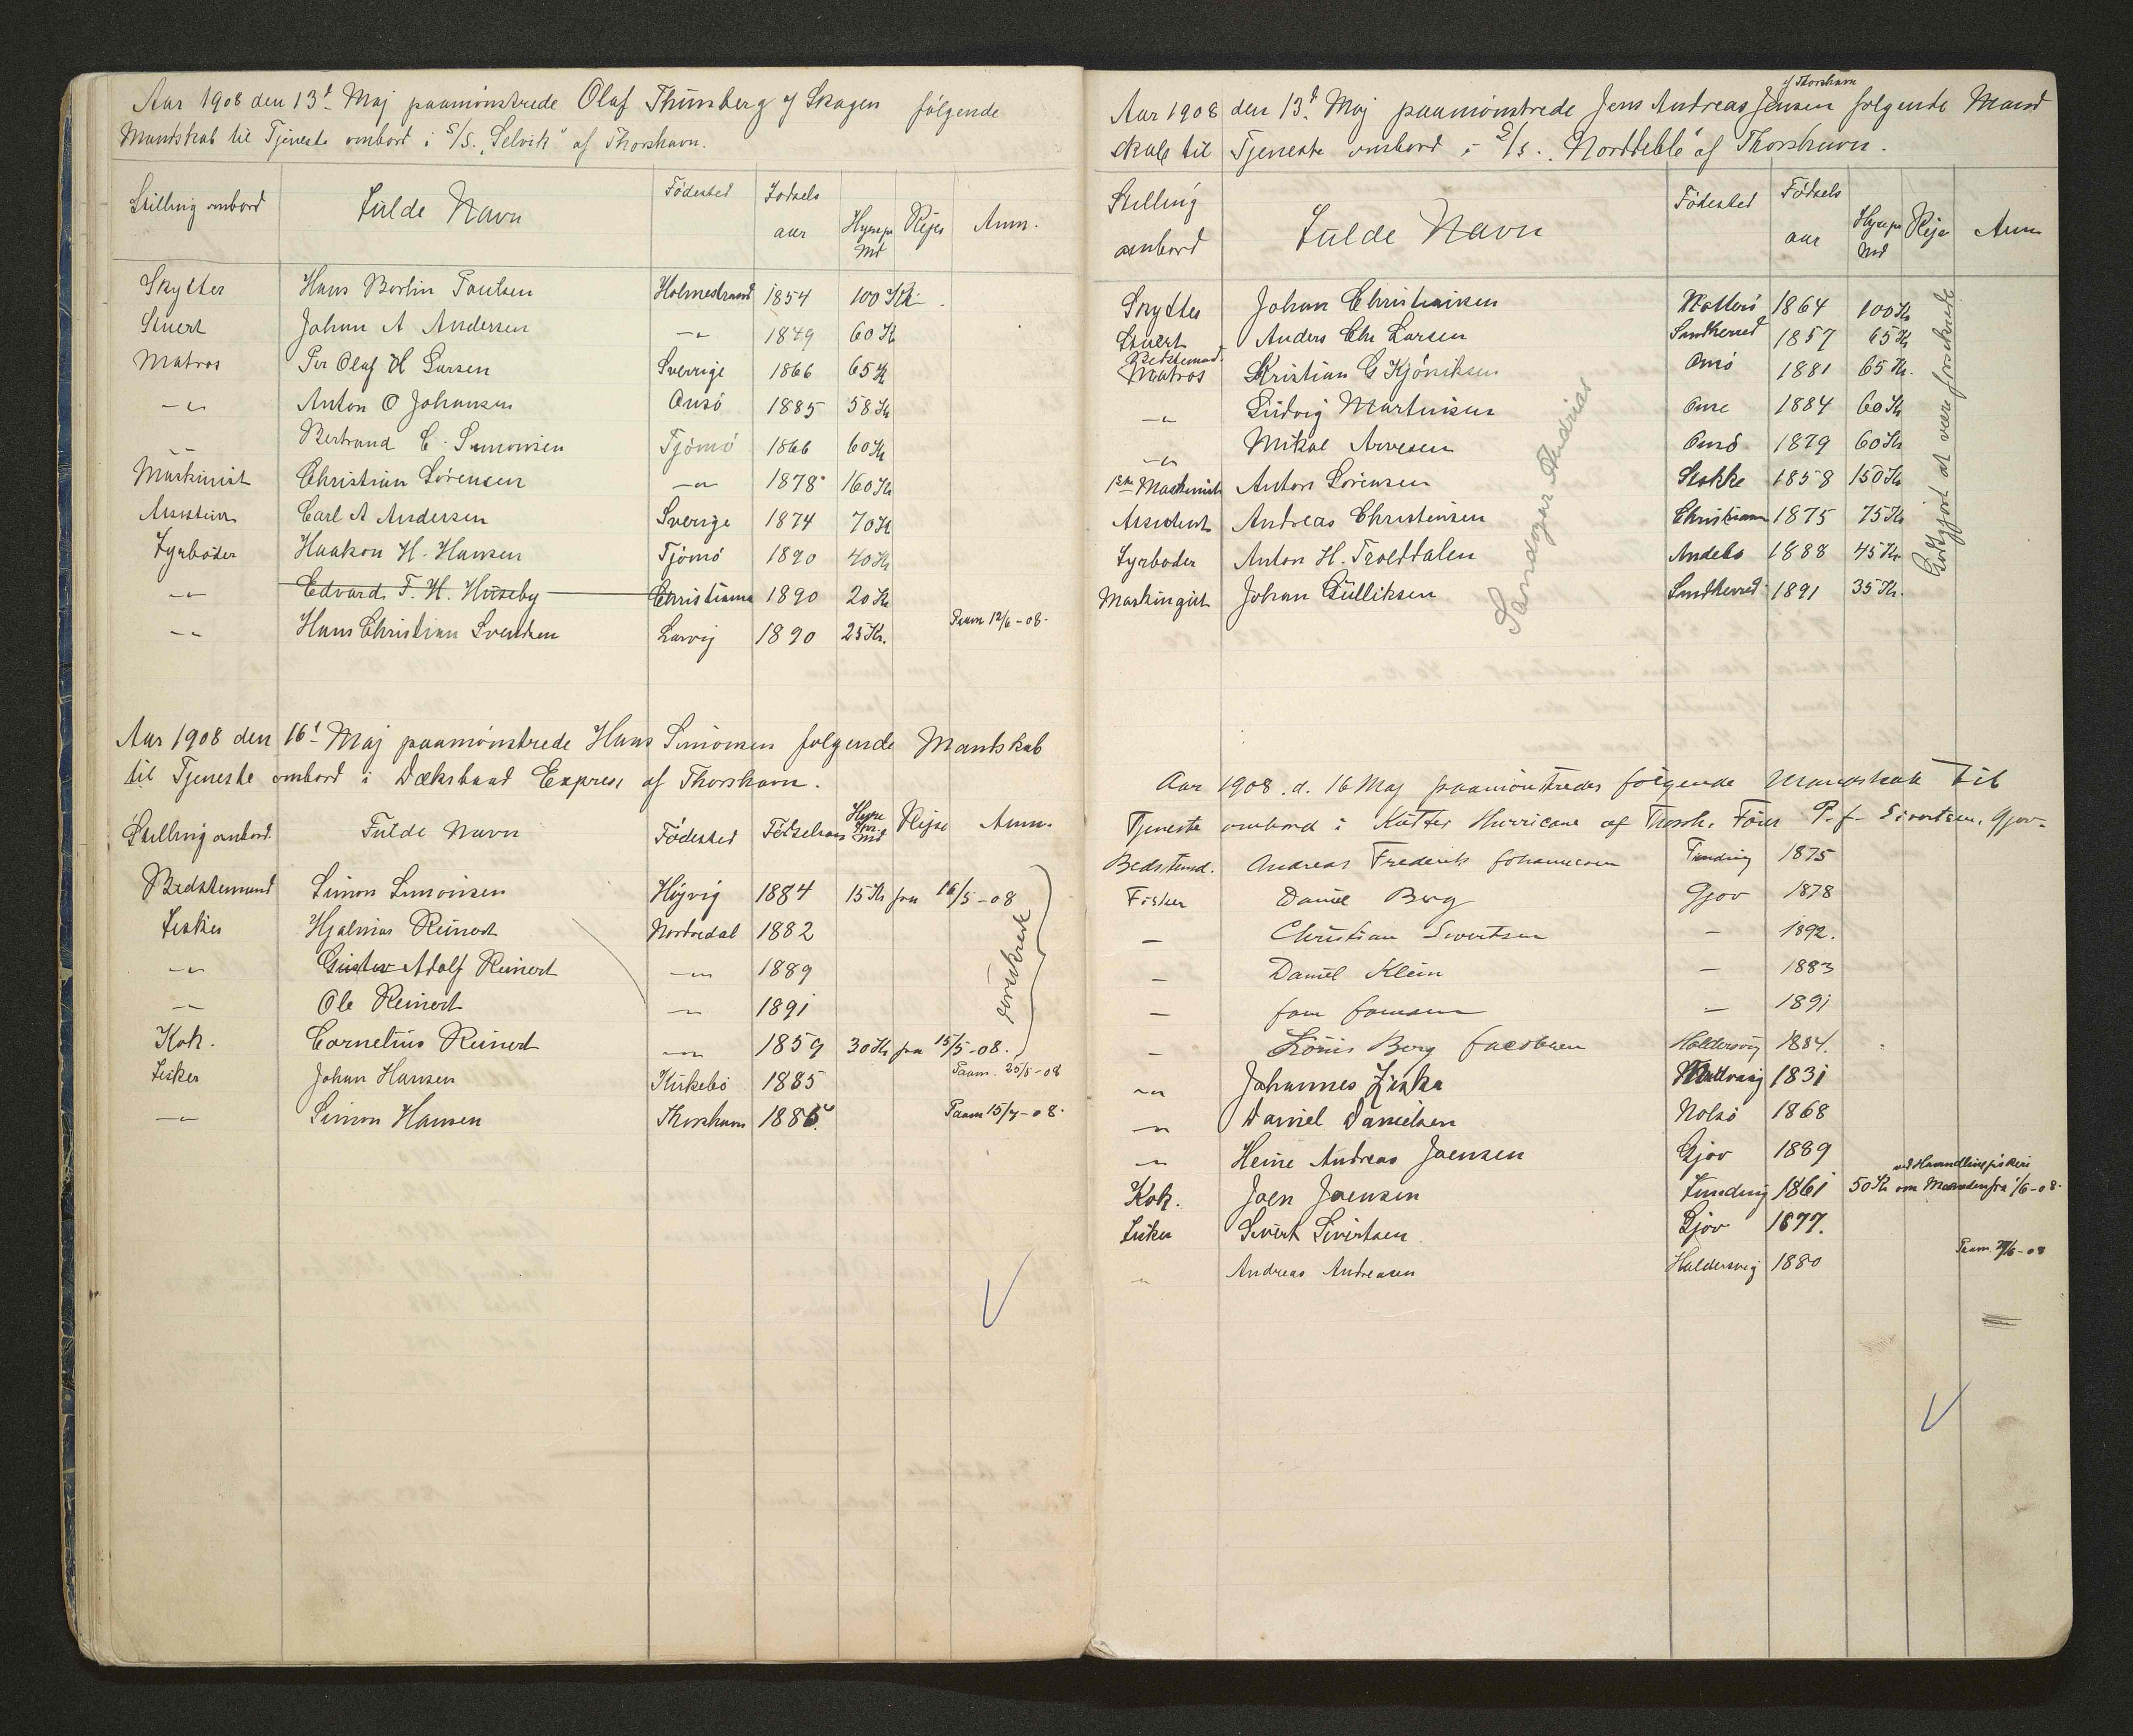 Aar 1908 den 13d Maj paamönstrede Olaf Thunberg af Skagen følgende
Mandskab til Tjeneste ombord i S/S. „Selvik" af Thorshavn.
Stilling ombord Fulde Navn Födested Fødsels aar Hyre pr Md Rejse Anm.
Skytter Hans Paulsen Holmestrand 1854 100 Kr
Stuert Johan A Andersen -"- 1849 60 Kr
Matros Per Olaf H Larsen Sverrige 1866 65 Kr
-"- Anton O Johansen Onsö 1885 58 Kr
-"- Bertrand C. Simonsen Tjömö 1866 60 Kr
Maskinist Christian Sörensen -"- 1878 160 Kr
Assistent Carl A Andersen Sverige 1874 70 Kr
Fyrböder Haakon H. Hansen Tjömö 1890 40 Kr
-"- Edvard F. H. Huseby Christiania 1890 20 Kr
-"- Hans Christian Svendsen Larvig 1890 25 Kr. Paam 12/6-08.
Aar 1908 den 16d Maj paamönstrede Hans Simonsen følgende Mandskab
til Tjeneste ombord i Dæksbaad Express af Thorshavn.
Stilling ombord. Fulde Navn Födested Födselsaar Hyre pr. Md Rejse Anm.
Bedstemand Simon Simonsen Höjvig 1884 15 Kr fra 16/5-08
Fisker Hjalmar Reinert Nordredal 1882
-"- Gustav Adolf Reinert -"- 1889
-"- Ole Reinert -"- 1891
forsikrede
Kok. Cornelius Reinert -"- 1859 30 Kr fra 15/5-08.
Fisker Johan Hansen Kirkebö 1885 Paam. 25/5-08
-"- Simon Hansen Thorshavn 1886. Paam 15/7-08.
Aar 1908 den 13d Maj paamönstrede Jens Andreas Jensen af Thorshavn følgende Mand
skab til Tjeneste ombord i S/S. „Norddeble" af Thorshavn.
Stilling ombord Fulde Navn Födested Födsels aar Hyre pr Md Rejse Anm
Skytter Johan Christiansen Nötterö 1864 100 Kr
Stuert Anders Chr Larsen Sandherred 1857 65 Kr
Bedstemand.
Matros Kristian G Onsö 1881 65 Kr.
-"- Ludvig Martinsen Onsö 1884 60 Kr
-"- Mikal Arvesen Onsö 1879 60 Kr
1ste Maskinist Anton Sörensen Stokke 1858 150 Kr
Assistent Andreas Christensen Christiania 1875 75 Kr
Fyrböder Anton H. Trolldalen Andebo 1888 45 Kr
Maskingut Johan Gulliksen Sandherred 1891 35 Kr.
Sandoger Andrias
Godtgjort at være forsikrede
Aar 1908. d. 16 Maj paamönstredes følgende Mandskab til
Tjeneste ombord i Kutter Hurricane af Thorsh. Förer P. J. Sivertsen, Gjov.
Bedstemd. Andreas Frederik Johannesen Funding 1875
Fisker Daniel Berg Gjov 1878
— Christian Sivertsen — 1892.
— Daniel Klein — 1883
— Joen Joensen — 1891
— Berg Jacobsen Haldersvig 1884.
-"- Johannes Ziska 1831
-"- Daniel Danielsen Nolsö 1868
-"- Heine Andreas Joensen Gjov 1889
Kok. Joen Joensen Funding 1861 50 Kr om Maaneden fra 1/6-08.
Fisker Sivert Sivertsen Gjov 1877.
-"- Andreas Andreasen Haldersvig 1880 Paam. 29/6-08